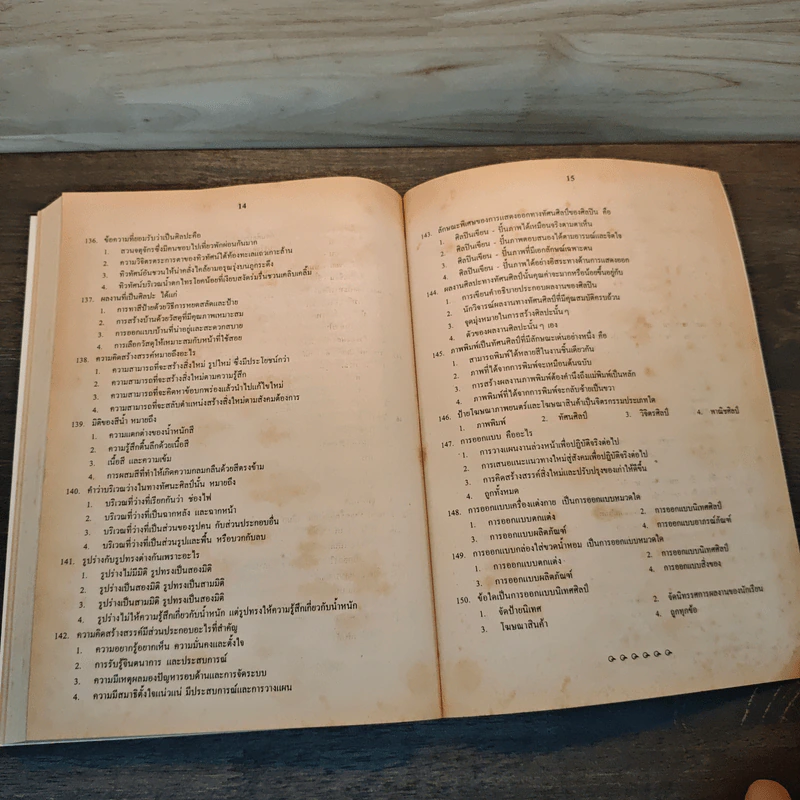 14
136. ข้อความที่ยอมรับว่าเป็นศิลปะคือ
1. สวนจตุจักรซึ่งมีคนชอบไปเที่ยวพักผ่อนกันมาก
2. ความวิจิตรตระการตาของทิวทัศน์ใต้ท้องทะเลแถวเกาะล้าน
3. ทิวทัศน์อันชวนให้น่าคลั่งใคล้ยามอรุณรุ่งบนภูกระดึง
4. ทิวทัศน์บริเวณน้ำตกไทรโยคน้อยที่เงียบสงัดร่มรื่นชวนเคลิบเคลิ้ม
137. ผลงานที่เป็นศิลปะ ได้แก่
1. การทาสีป้ายด้วยวิธีการหยดสลัดและป้าย
2. การสร้างบ้านด้วยวัสดุที่มีคุณภาพเหมาะสม
3. การออกแบบบ้านที่น่าอยู่และสะดวกสบาย
4. การเลือกวัสดุให้เหมาะสมกับหน้าที่ใช้สอย
138. ความคิดสร้างสรรค์หมายถึงอะไร
1. ความสามารถที่จะสร้างสิ่งใหม่ รูปใหม่ ซึ่งมีประโยชน์กว่า
2. ความสามารถที่จะสร้างสิ่งใหม่ตามความรู้สึก
3. ความสามารถที่จะคิดหาข้อบกพร่องแล้วนำไปแก้ไขใหม่
4. ความสามารถที่จะสลับตำแหน่งสร้างสิ่งใหม่ตามสังคมต้องการ
139. มิติของสีน้ำ หมายถึง
1. ความแตกต่างของน้ำหนักสี
2. ความรู้สึกตื้นลึกด้วยเนื้อสี
3. เนื้อสี และความเข้ม
4. การผสมสีที่ทำให้เกิดความกลมกลืนด้วยสีตรงข้าม
140. คำว่าบริเวณว่างในทางทัศนะศิลป์นั้น หมายถึง
1. บริเวณที่ว่างที่เรียกกันว่า ช่องไฟ
2. บริเวณที่ว่างที่เป็นฉากหลัง และฉากหน้า
3. บริเวณที่ว่างที่เป็นส่วนของรูปคน กับส่วนประกอบอื่น
4. บริเวณที่ว่างที่เป็นส่วนรูปและพื้น หรือบวกกับลบ
141. รูปร่างกับรูปทรงต่างกันเพราะอะไร
1. รูปร่างไม่มีมิติ รูปทรงเป็นสองมิติ
2. รูปร่างเป็นสองมิติ รูปทรงเป็นสามมิติ
3. รูปร่างเป็นสามมิติ รูปทรงเป็นสองมิติ
4. รูปร่างไม่ให้ความรู้สึกเกี่ยวกับน้ำหนัก แต่รูปทรงให้ความรู้สึกเกี่ยวกับน้ำหนัก
142. ความคิดสร้างสรรค์มีส่วนประกอบอะไรที่สำคัญ
1. ความอยากรู้อยากเห็น ความมั่นคงและตั้งใจ
2. การรับรู้จินตนาการ และประสบการณ์
3. ความมีเหตุผลมองปัญหารอบด้านและการจัดระบบ
4. ความมีสมาธิตั้งใจแน่วแน่ มีประสบการณ์และการวางแผน
15
143. ลักษณะพิเศษของการแสดงออกทางทัศนศิลป์ของศิลปิน คือ
1. ศิลปินเขียน - ปั้นภาพได้เหมือนจริงตามตาเห็น
2. ศิลปินเขียน - ปั้นภาพตอบสนองได้ตามอารมณ์และจิตใจ
3. ศิลปินเขียน - ปั้นภาพที่มีเอกลักษณ์เฉพาะตน
4. ศิลปินเขียน - ปั้นภาพได้อย่างอิสระทางด้านการแสดงออก
144. ผลงานศิลปะทางทัศนศิลป์นั้นคุณค่าจะมากหรือน้อยขึ้นอยู่กับ
1. การเขียนคำอธิบายประกอบผลงานของศิลปิน
2. นักวิจารณ์ผลงานทางทัศนศิลป์ที่มีคุณสมบัติครบถ้วน
3. จุดมุ่งหมายในการสร้างศิลปะนั้น ๆ
4. ตัวของผลงานศิลปะนั้น ๆ เอง
145. ภาพพิมพ์เป็นทัศนศิลป์ที่มีลักษณะเด่นอย่างหนึ่ง คือ
1. สามารถพิมพ์ได้หลายสีในงานชิ้นเดียวกัน
2. ภาพที่ได้จากการพิมพ์จะเหมือนต้นฉบับ
3. การสร้างผลงานภาพพิมพ์ต้องคำนึงถึงแม่พิมพ์เป็นหลัก
4. ภาพพิมพ์ที่ได้จากการพิมพ์จะกลับซ้ายเป็นขวา
146. ป้ายโฆษณาภาพยนตร์และโฆษณาสินค้าเป็นจิตรกรรมประเภทใด
1. ภาพพิมพ์ 2. ทัศนศิลป์ 3. วิจิตรศิลป์ 4. พาณิชศิลป์
147. การออกแบบ คืออะไร
1. การวางแผนงานล่วงหน้าเพื่อปฏิบัติจริงต่อไป
2. การเสนอแนะแนวทางใหม่สู่สังคมเพื่อปฏิบัติจริงต่อไป
3. การคิดสร้างสรรค์สิ่งใหม่และปรับปรุงของเก่าให้ดีขึ้น
4. ถูกทั้งหมด
148. การออกแบบเครื่องแต่งกาย เป็นการออกแบบหมวดใด
1. การออกแบบตกแต่ง 2. การออกแบบนิเทศศิลป์
3. การออกแบบผลิตภัณฑ์ 4. การออกแบบอาภรณ์ภัณฑ์
149. การออกแบบกล่องใส่ขวดน้ำหอม เป็นการออกแบบหมวดใด
1. การออกแบบตกแต่ง 2. การออกแบบนิเทศศิลป์
3. การออกแบบผลิตภัณฑ์ 4. การออกแบบสิ่งของ
150. ข้อใดเป็นการออกแบบนิเทศศิลป์
1. จัดป้ายนิเทศ 2. จัดนิทรรศการผลงานของนักเรียน
3. โฆษณาสินค้า 4. ถูกทุกข้อ